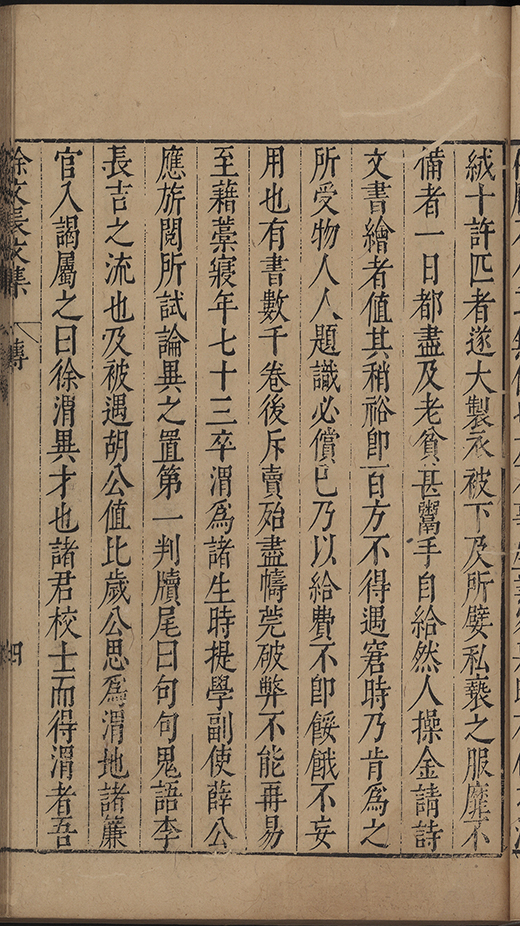 絨十許匹者遂大製衣被下及所嬖私褻之服靡不
備者一日都盡及老貧甚鬻手自給然人操金請詩
文書繪者值其稍裕即百方不得遇窘時乃肯爲之
所受物人人題識必償已乃以給費不即餒餓不妄
用也有書數千卷後斥賣殆盡幬莞破弊不能再易
至藉藁寢年七十三卒渭爲諸生時提學副使薛公
應旂閱所試論異之置第一判牘尾曰句句鬼語李
長吉之流也及被遇胡公值比歲公思爲渭地諸簾
官入謁屬之曰徐渭異才也諸君校士而得渭者吾
徐文長文集 傳 四